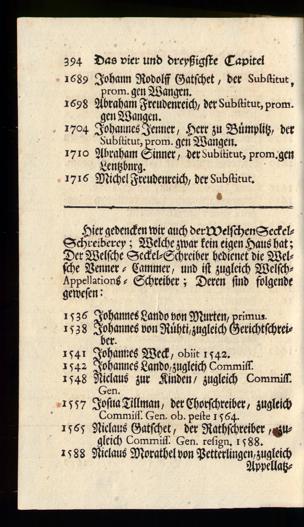 394 Das vier und dreyßigste Capitel
1689 Johann Rodolff Gatschet, der Substitut,
prom. gen Wangen.
1698 Abraham Freudenreich, der Substitut, prom.
gen Wangen.
1704 Johannes Jenner, Herr zu Bümplitz, der
Substitut, prom. gen Wangen.
1710 Abraham Sinner, der Substitut, prom. gen
Lentzburg.
1716 Michel Freudenreich, der Substitut.
Hier gedencken wir auch der Welschen Seckel-
Schreiberey; Welche zwar kein eigen Haus hat;
Der Welsche Seckel-Schreiber bedienet die Wel-
sche Venner-Cammer, und ist zugleich Welsch-
Appellations-Schreiber; Deren sind folgende
gewesen:
1536 Johannes Lando von Murten, primus.
1538 Johannes von Rühti, zugleich Gerichtschrei-
ber.
1541 Johannes Weck, obiit 1542.
1542 Johannes Lando, zugleich Commiss.
1548 Niclaus zur Kinden, zugleich Commiss.
Gen.
1557 Josua Tillman, der Chorschreiber, zugleich
Commiss. Gen. ob. peste 1564.
1565 Niclaus Gatschet, der Rathschreiber, zu-
gleich Commiss. Gen. resign. 1588.
1588 Niclaus Morathel von Petterlingen, zugleich
Appellatz-